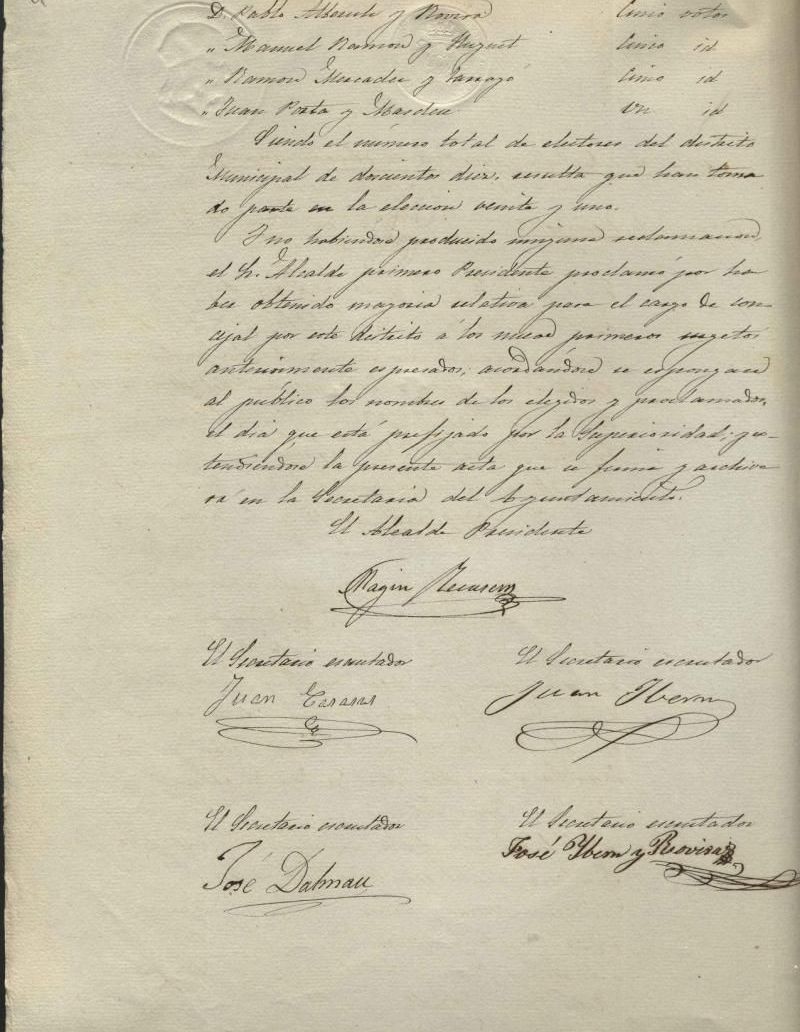 D. Pablo Albenele y Rovira Cinco votos
" Manuel Ramon y Huguet Cinco id
" Ramon Mercader y Cinco id
" Juan Porta y Un id
Siendo el número total de electores del distrito
Municipal de doscientos diez, resulta que han toma
do parte en la eleccion veinte y uno.
Y no habiendose producido ninguna reclamacion,
el Sr. Alcalde primero Presidente proclamó por ha
ber obtenido mayoria relativa para el cargo de con
cejal por este distrito á los nueve primeros sugetos
anteriormente espresados; acordándose se espongan
al público los nombres de los elegidos y proclamados,
el dia que está prefijado por la Superioridad; y es-
tendiéndose la presente acta que se firma y archiva
rá en la Secretaria del Ayuntamiento.
El Alcalde Presidente
Magin Recasens
El Secretario escrutador El Secretario escrutador
Juan Juan Ybern
El Secretario escrutador El Secretario escrutador
José Dalmau José Ybern y Rovira